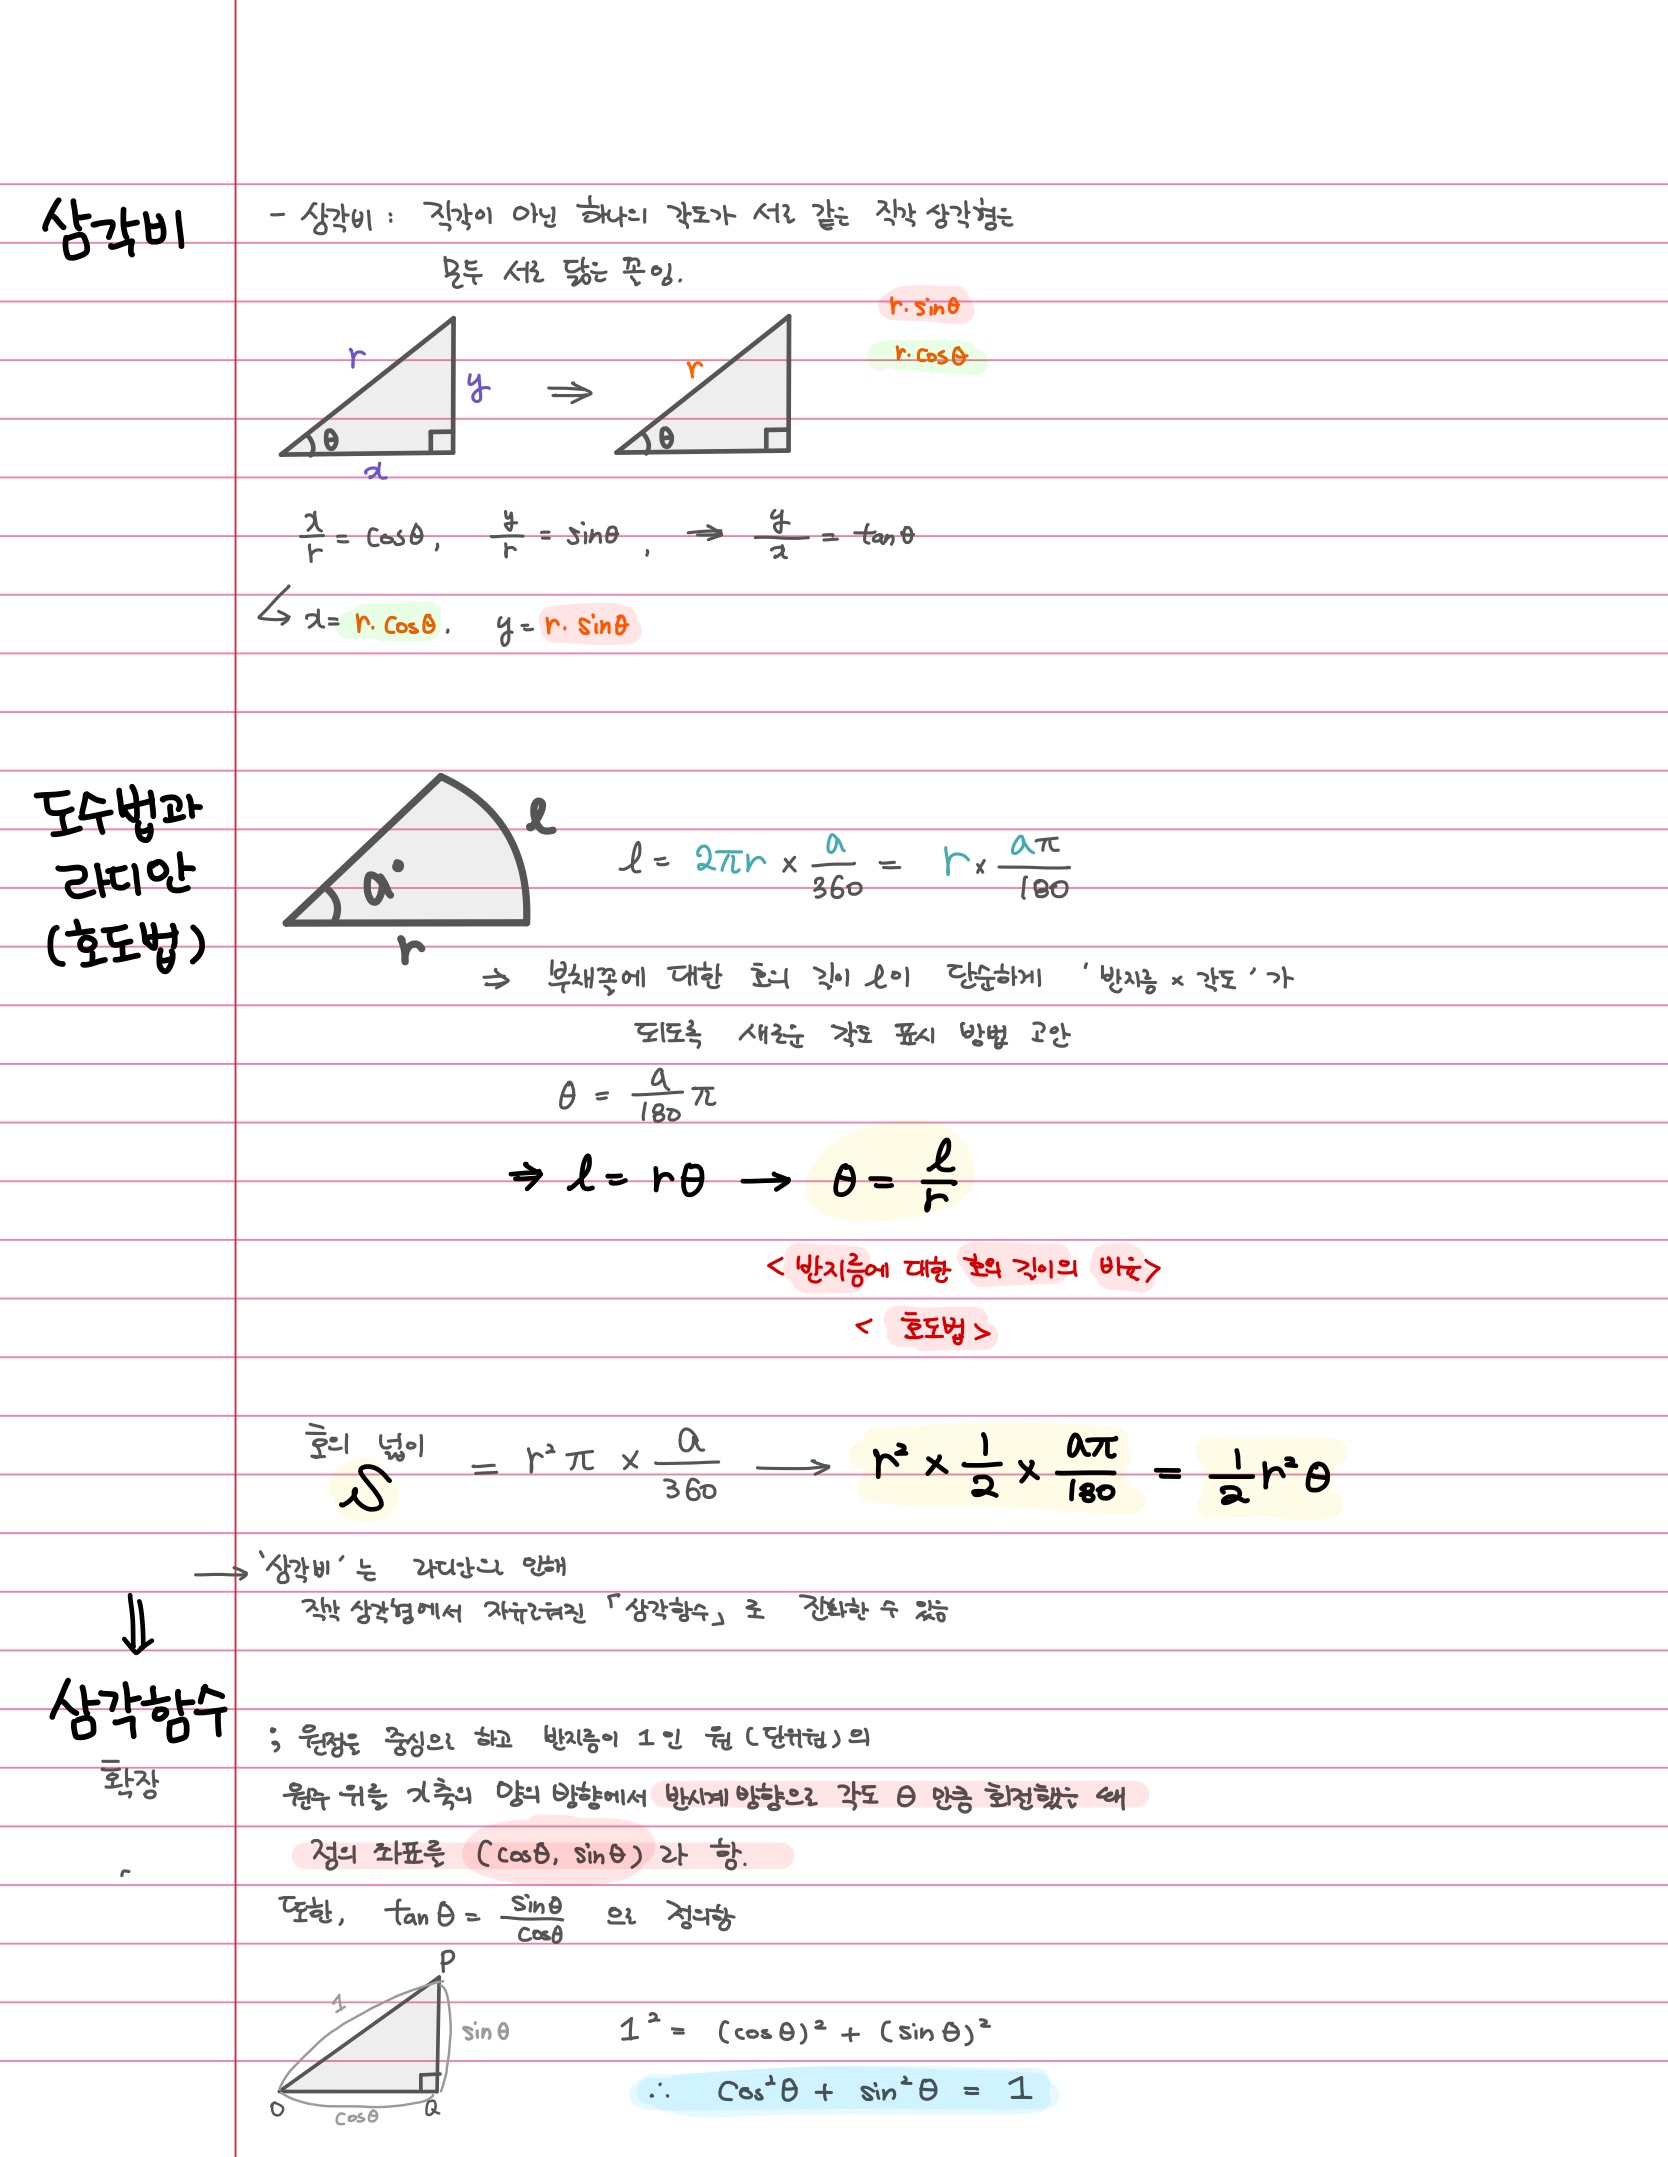 삼각비
- 삼각비 : 직각이 아닌 하나의 각도가 서로 같은 직각 삼각형은
모두 서로 닮은 꼴임.
r·sinθ
r·cosθ
r
y
θ
x
⇒
r
θ
x/r = cosθ, y/r = sinθ, → y/x = tanθ
↳ x = r·cosθ. y = r·sinθ
도수법과
라디안
(호도법)
l
a°
r
l = 2πr × a/360 = r × aπ/180
⇒ 부채꼴에 대한 호의 길이 l이 단순하게 '반지름 × 각도'가
되도록 새로운 각도 표시 방법 고안
θ = a/180 π
⇒ l = rθ → θ = l/r
<반지름에 대한 호의 길이의 비율>
< 호도법 >
호의 넓이
S = r²π × a/360 → r² × 1/2 × aπ/180 = 1/2 r²θ
→ '삼각비'는 라디안으로 인해
직각 삼각형에서 자유로워진 「삼각함수」로 진화할 수 있음
⇓
삼각함수
확장
; 원점을 중심으로 하고 반지름이 1인 원 (단위원)의
원주 위를 x축의 양의 방향에서 반시계 방향으로 각도 θ 만큼 회전했을 때
점의 좌표를 (cosθ, sinθ)라 함.
또한, tanθ = sinθ/cosθ 으로 정의함
P
1
sinθ
O
cosθ
Q
1² = (cosθ)² + (sinθ)²
∴ cos²θ + sin²θ = 1